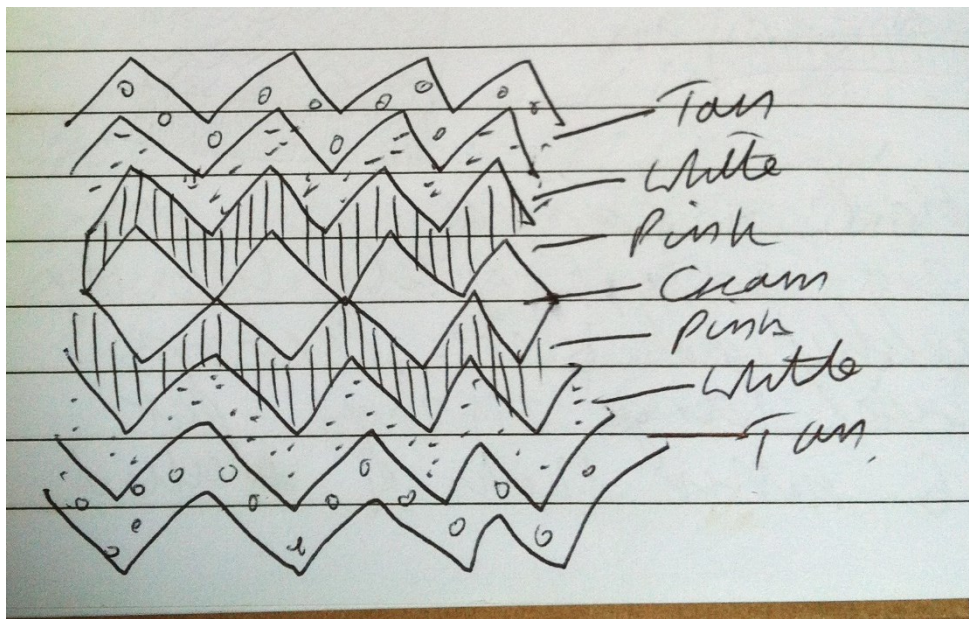 Tan
White
Pink
Cream
Pink
White
Tan